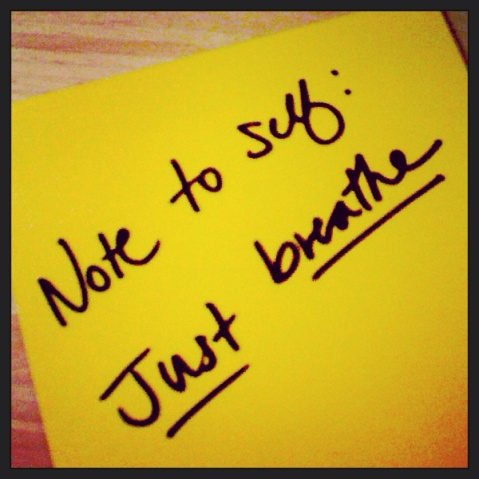 Note to self:
Just breathe